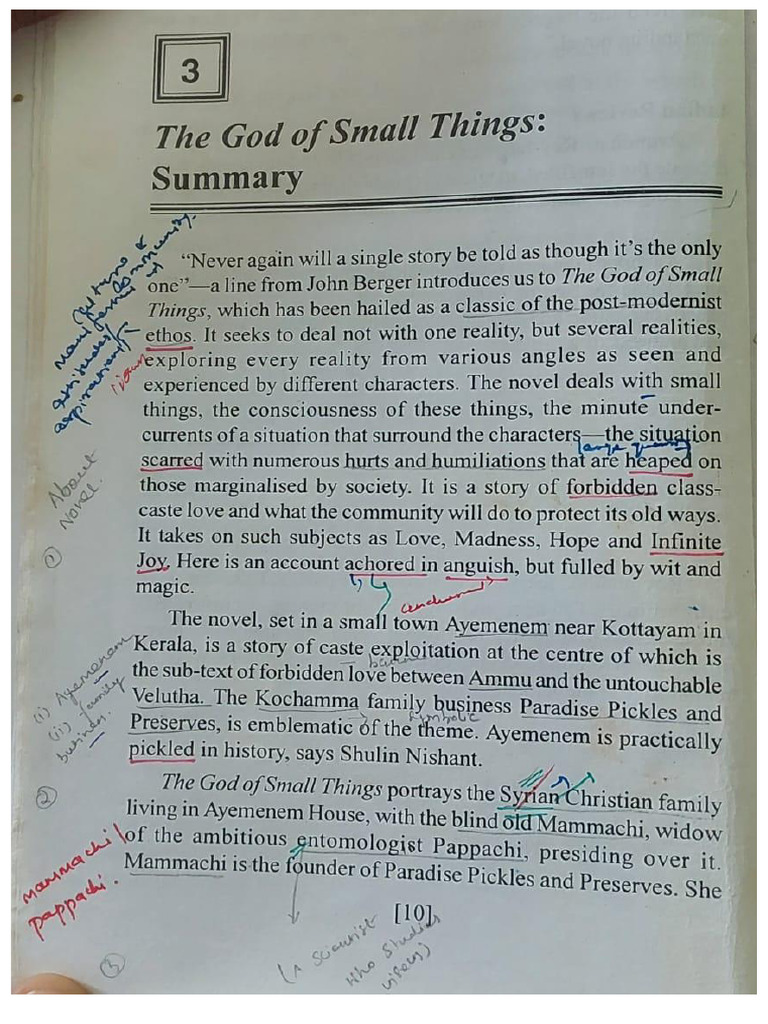 3
The God of Small Things:
Summary
"Never again will a single story be told as though it's the only
one"—a line from John Berger introduces us to The God of Small
Things, which has been hailed as a classic of the post-modernist
ethos. It seeks to deal not with one reality, but several realities,
exploring every reality from various angles as seen and
experienced by different characters. The novel deals with small
things, the consciousness of these things, the minute under-
currents of a situation that surround the characters—the situation
scarred with numerous hurts and humiliations that are heaped on
those marginalised by society. It is a story of forbidden class-
caste love and what the community will do to protect its old ways.
It takes on such subjects as Love, Madness, Hope and Infinite
Joy. Here is an account achored in anguish, but fulled by wit and
magic.
About
Novel.
1
The novel, set in a small town Ayemenem near Kottayam in
Kerala, is a story of caste exploitation at the centre of which is
the sub-text of forbidden love between Ammu and the untouchable
Velutha. The Kochamma family business Paradise Pickles and
symbolic
Preserves, is emblematic of the theme. Ayemenem is practically
pickled in history, says Shulin Nishant.
(i) Ayemenem
(ii) family
2
The God of Small Things portrays the Syrian Christian family
living in Ayemenem House, with the blind old Mammachi, widow
of the ambitious entomologist Pappachi, presiding over it.
Mammachi is the founder of Paradise Pickles and Preserves. She
mammachi
pappachi.
[10]
(A scientist
who studies
3